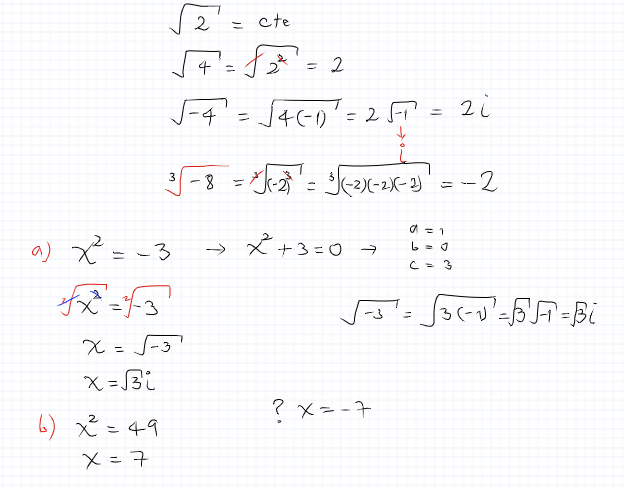 √2 = cte
√4 = √2² = 2
√-4 = √4(-1) = 2 √-1 = 2i
i
³√-8 = ³√(-2)³ = ³√(-2)(-2)(-2) = -2
a) x² = -3 → x² + 3 = 0 → a = 1
b = 0
c = 3
²√x² = ²√-3
√-3 = √3(-1) = √3 √-1 = √3 i
x = √-3
x = √3 i
b) x² = 49
? x = -7
x = 7